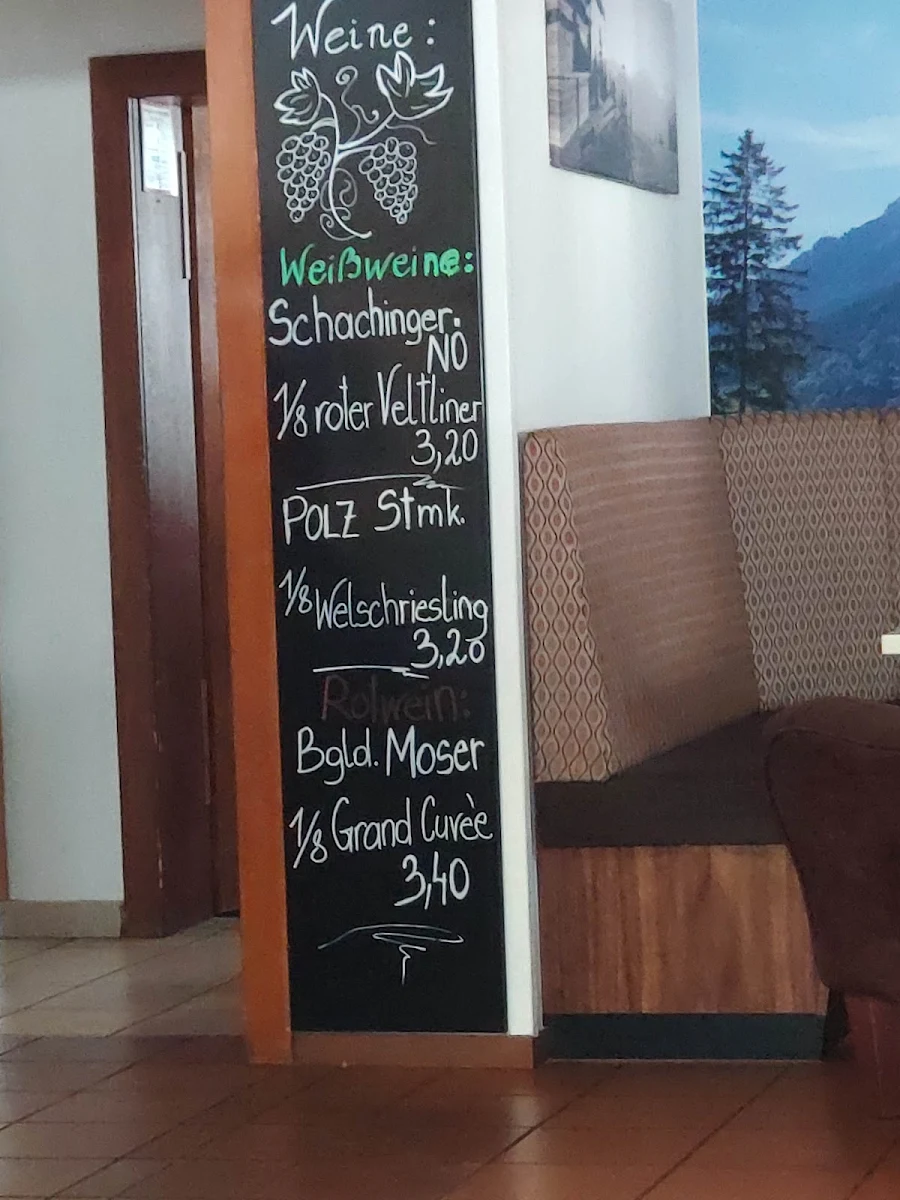 Weine:
Weißweine:
Schachinger.
NÖ
1/8 roter Veltliner
3,20
POLZ Stmk.
1/8 Welschriesling
3,20
Rotwein:
Bgld. Moser
1/8 Grand Cuvèe
3,40